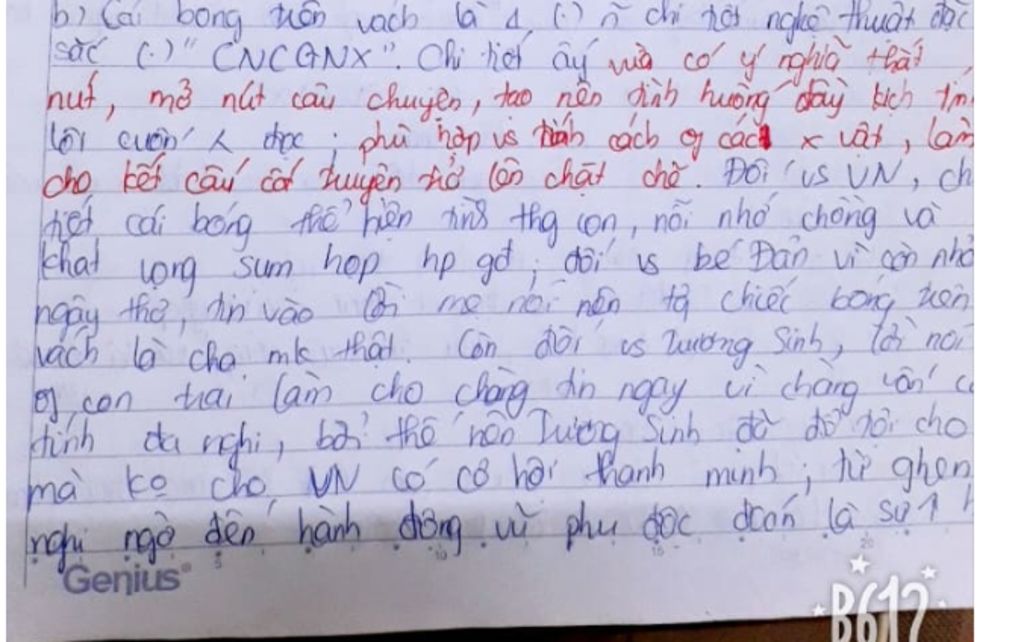 b) Cái bóng trên vách là 1 (.) n~ chi tiết nghệ thuật đặc
sắc (.) "CNCGNX". Chi tiết ấy vừa có ý nghĩa thắt
nút, mở nút câu chuyện, tạo nên tình huống đầy kịch tín
lôi cuốn ng đọc; phù hợp vs tính cách of các x vật, làm
cho kết cấu cốt truyện trở lên chặt chẽ. Đối vs VN, ch
tiết cái bóng thể hiện tình thg con, nỗi nhớ chồng và
khát vọng sum họp hp gđ; đối vs bé Đản vì còn nhỏ
ngây thơ, tin vào lời mẹ nói nên tg chiếc bóng trên
vách là cha mk thật. Còn đối vs Trương Sinh, lời nói
of con trai làm cho chàng tin ngay vì chàng vốn c
tính đa nghi, bởi thế nên Trương Sinh đã đổ tội cho
mà ko cho VN có cơ hội thanh minh; từ ghen
nghi ngờ đến hành động vũ phu độc đoán là sự 1 h
Genius
B612